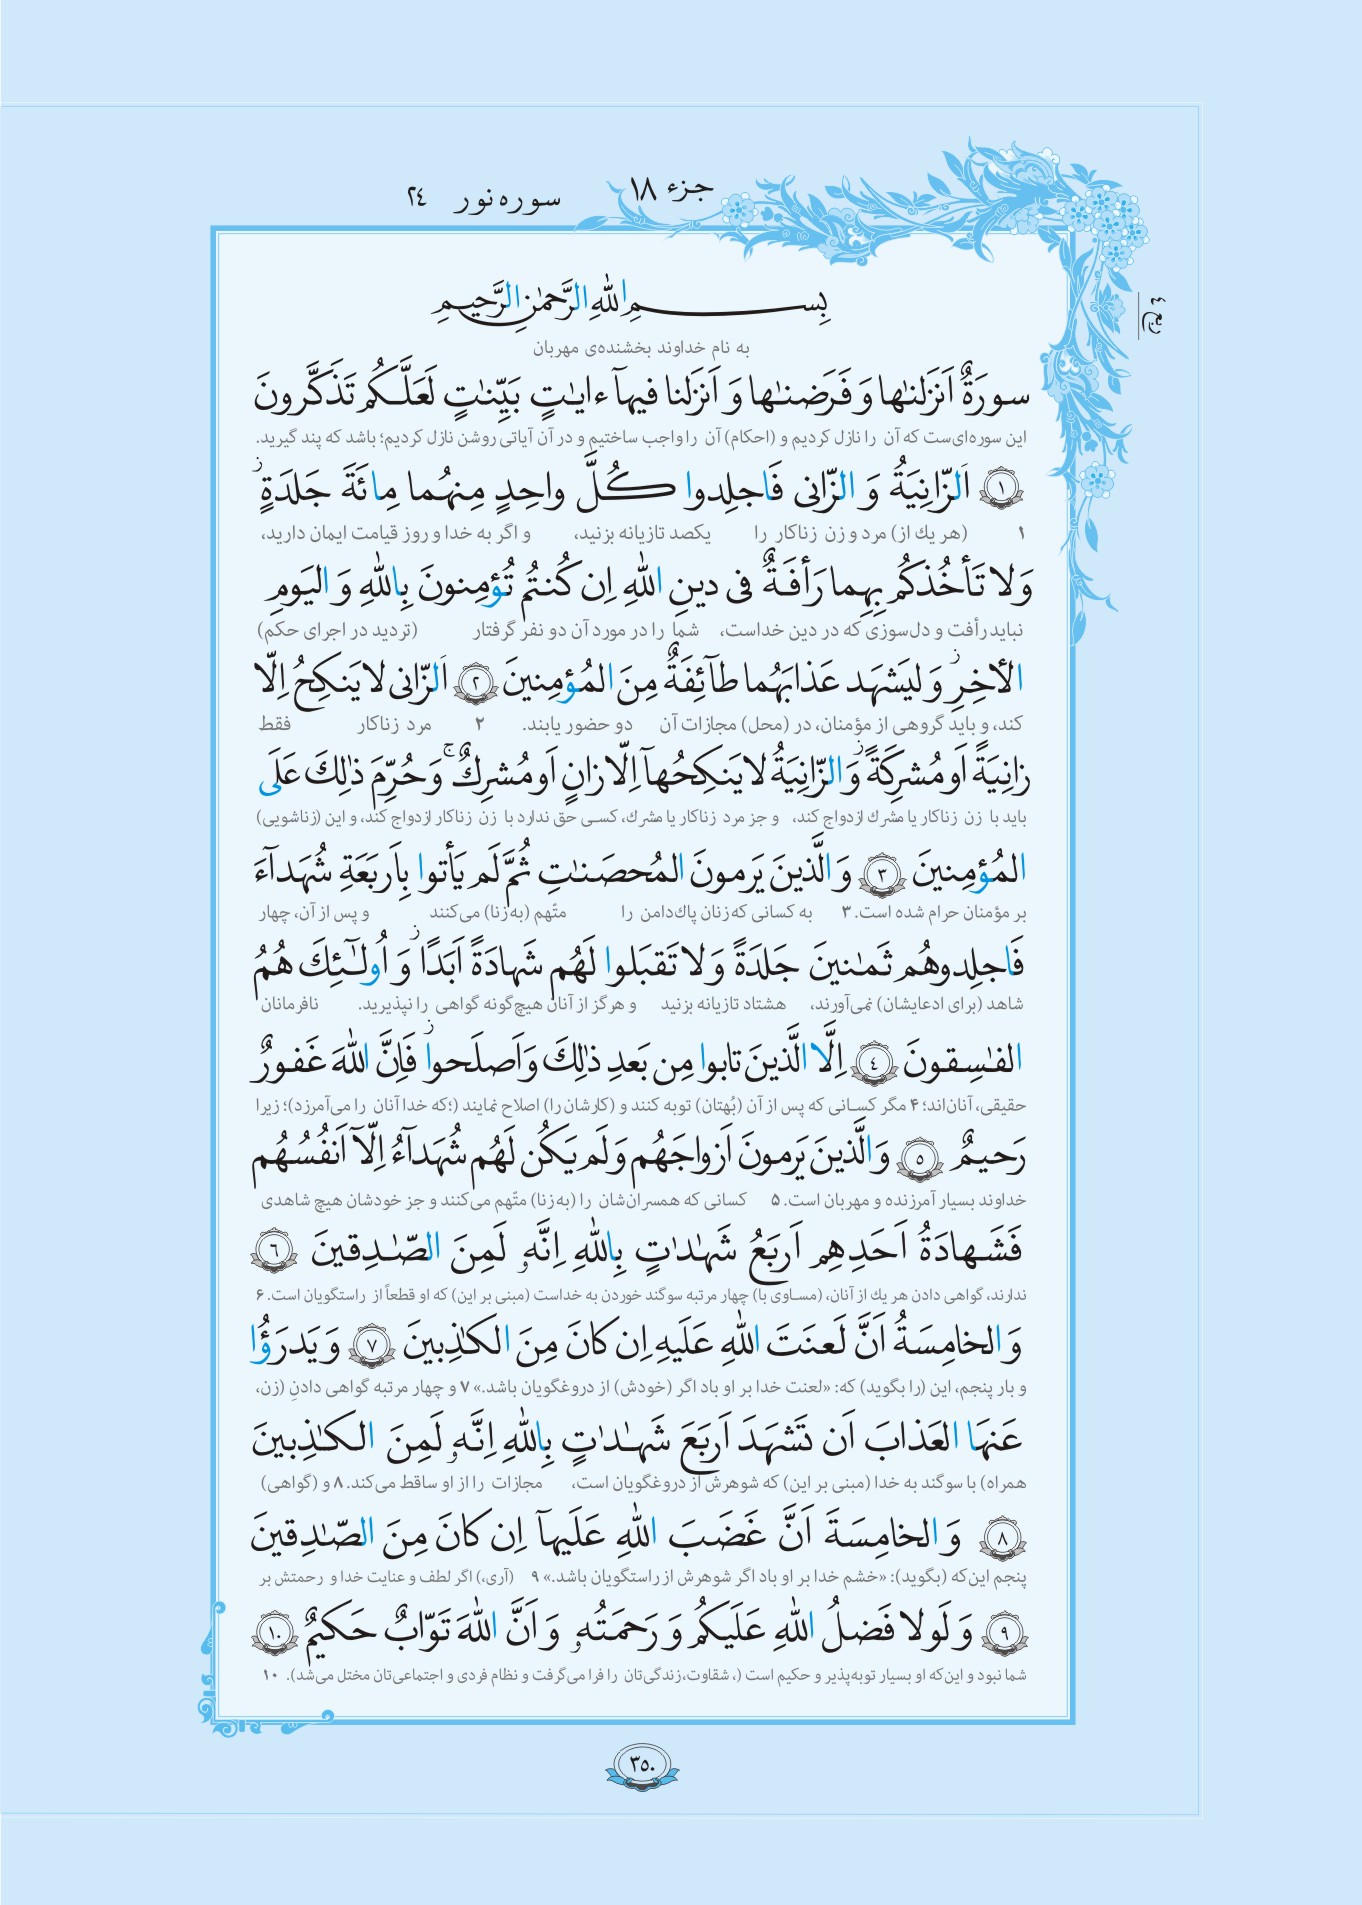 جزء ۱۸
سوره نور ۲٤
ربع ٤
بِسـمِ اللّٰهِ الرَّحمٰنِ الرَّحیـمِ
به نام خداوند بخشنده‌ی مهربان
سورَةٌ اَنزَلنٰها وَ فَرَضنٰها وَ اَنزَلنا فیهآ ءایٰتٍ بَیِّنٰتٍ لَعَلَّکُم تَذَکَّرونَ
این سوره‌ای‌ست که آن را نازل کردیم و (احکام) آن را واجب ساختیم و در آن آیاتی روشن نازل کردیم؛ باشد که پند گیرید.
۱ اَلزّانِیَةُ وَ الزّانی فَاجلِدوا کُلَّ واحِدٍ مِنهُما مِائَةَ جَلدَةٍ ز
۱ (هر یك از) مرد و زن زناکار را یکصد تازیانه بزنید، و اگر به خدا و روز قیامت ایمان دارید،
وَ لا تَأخُذکُم بِهِما رَأفَةٌ فی دینِ اللّٰهِ اِن کُنتُم تُؤمِنونَ بِاللّٰهِ وَ الیَومِ
نباید رأفت و دل‌سوزی که در دین خداست، شما را در مورد آن دو نفر گرفتار (تردید در اجرای حکم)
الأخِرِ ز وَلیَشهَد عَذابَهُما طآئِفَةٌ مِنَ المُؤمِنینَ ۲ اَلزّانی لا یَنکِحُ اِلّا
کند، و باید گروهی از مؤمنان، در (محل) مجازات آن دو حضور یابند. ۲ مرد زناکار فقط
زانِیَةً اَو مُشرِکَةً ز وَ الزّانِیَةُ لا یَنکِحُهآ اِلّا زانٍ اَو مُشرِكٌ ج وَ حُرِّمَ ذٰلِكَ عَلَی
باید با زن زناکار یا مشرك ازدواج کند، و جز مرد زناکار یا مشرك، کسـی حق ندارد با زن زناکار ازدواج کند، و این (زناشویی)
المُؤمِنینَ ۳ وَ الَّذینَ یَرمونَ المُحصَنٰتِ ثُمَّ لَم یَأتوا بِاَربَعَةِ شُهَدآءَ
بر مؤمنان حرام شده است. ۳ به کسانی که زنان پاك‌دامن را متّهم (به زنا) می‌کنند و پس از آن، چهار
فَاجلِدوهُم ثَمٰنینَ جَلدَةً وَ لا تَقبَلوا لَهُم شَهادَةً اَبَدًا ز وَ اُولٰـئِكَ هُمُ
شاهد (برای ادعایشان) نمی‌آورند، هشتاد تازیانه بزنید و هرگز از آنان هیچ‌گونه گواهی را نپذیرید. نافرمانان
الفٰسِقونَ ٤ اِلَّا الَّذینَ تابوا مِن بَعدِ ذٰلِكَ وَ اَصلَحوا ز فَاِنَّ اللّٰهَ غَفورٌ
حقیقی، آنان‌اند؛ ۴ مگر کسـانی که پس از آن (بُهتان) توبه کنند و (کارشان را) اصلاح نمایند (؛که خدا آنان را می‌آمرزد)؛ زیرا
رَحیمٌ ٥ وَ الَّذینَ یَرمونَ اَزواجَهُم وَ لَم یَکُن لَهُم شُهَدآءُ اِلّآ اَنفُسُهُم
خداوند بسیار آمرزنده و مهربان است. ۵ کسانی که همسران‌شان را (به زنا) متّهم می‌کنند و جز خودشان هیچ شاهدی
فَشَـهادَةُ اَحَدِهِم اَربَعُ شَهٰدٰتٍ بِاللّٰهِ اِنَّهٗ لَمِنَ الصّٰدِقینَ ٦
ندارند، گواهی دادن هر یك از آنان، (مسـاوی با) چهار مرتبه سوگند خوردن به خداست (مبنی بر این) که او قطعاً از راستگویان است. ۶
وَ الخامِسَةُ اَنَّ لَعنَتَ اللّٰهِ عَلَیهِ اِن کانَ مِنَ الکٰذِبینَ ۷ وَ یَدرَؤُا
و بار پنجم، این (را بگوید) که: «لعنت خدا بر او باد اگر (خودش) از دروغگویان باشد.» ۷ و چهار مرتبه گواهی دادنِ (زن،
عَنهَا العَذابَ اَن تَشهَدَ اَربَعَ شَهٰدٰتٍ بِاللّٰهِ اِنَّهٗ لَمِنَ الکٰذِبینَ
همراه) با سوگند به خدا (مبنی بر این) که شوهرش از دروغگویان است، مجازات را از او ساقط می‌کند. ۸ و (گواهی)
۸ وَ الخامِسَةَ اَنَّ غَضَبَ اللّٰهِ عَلَیهآ اِن کانَ مِنَ الصّٰدِقینَ
پنجم این‌که (بگوید): «خشم خدا بر او باد اگر شوهرش از راستگویان باشد.» ۹ (آری،) اگر لطف و عنایت خدا و رحمتش بر
۹ وَ لَولا فَضلُ اللّٰهِ عَلَیکُم وَ رَحمَتُهٗ وَ اَنَّ اللّٰهَ تَوّابٌ حَکیمٌ ۱۰
شما نبود و این‌که او بسیار توبه‌پذیر و حکیم است (، شقاوت، زندگی‌تان را فرا می‌گرفت و نظام فردی و اجتماعی‌تان مختل می‌شد). ۱۰
۳۵۰